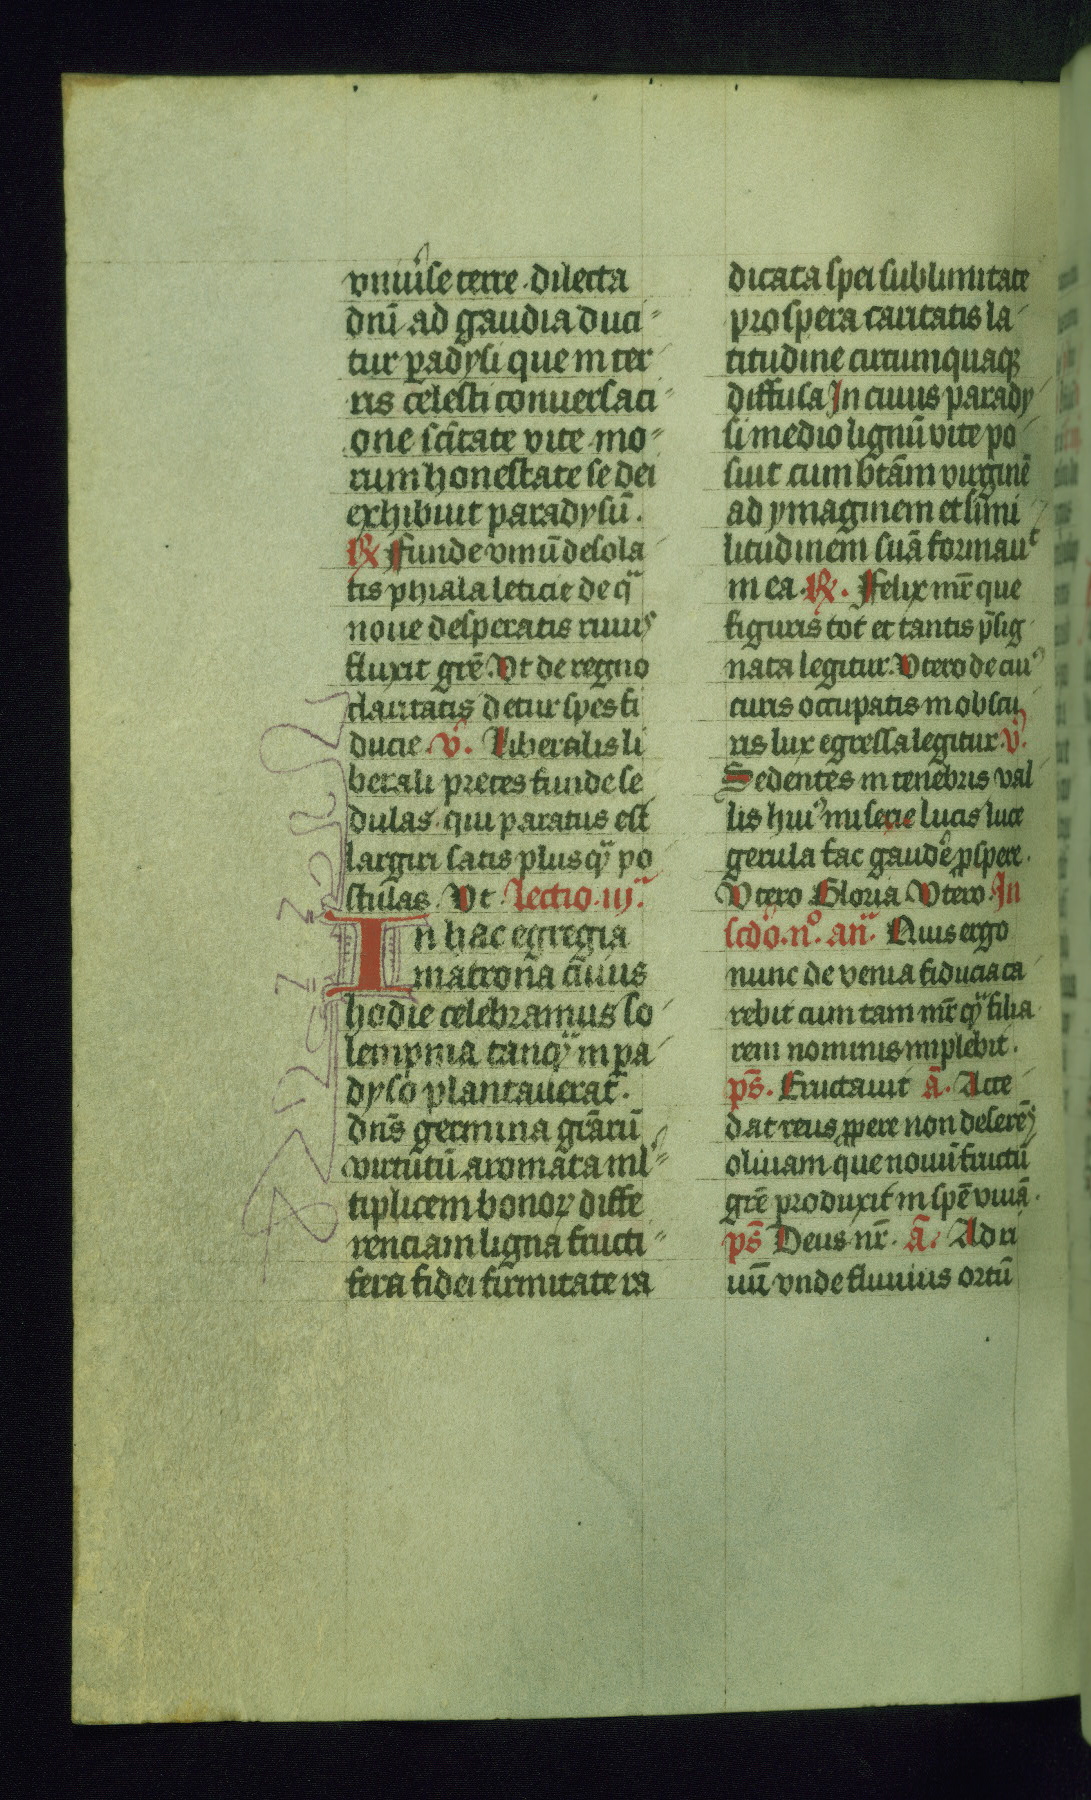 vniu̓se terre dilecta
dn̄i ad gaudia duci-
tur p̱adysi que in ter
ris celesti conuersaci-
one sc̄itate vite mo-
rum honestate se dei
exhibuit paradysū.
℟ Funde vinū desola
tis phiala leticie de qͣ
noue desperatis riuuꝰ
fluxit grē. Vt de regno
claritatis detur spes fi
ducie. v̄. Liberalis li
berali preces funde se
dulas qui paratus est
largiri satis plus qͣ po
stulas. Vt. Lectio. iijͣ.
In hac egregia
matrona cuius
hodie celebramus so
lempnia tanqͣ in pa
dyso plantauerat.
dn̄s germina grāru
virtutū aromata ml-
tiplicem honoꝝ diffe
renciam ligna fructi-
fera fidei firmitate ra
dicata spei sublimitate
prospera caritatis la
titudine circumquaqꝫ
diffusa In cuius parady
si medio lignū vite po
suit cum btām virginē
ad ymaginem et simi
litudinem suā formauͭ
in ea. ℟. Felix mr̄ que
figuris tot et tantis p̄sig
nata legitur. Vtero de cuiꝰ
curis occupatis in obscu
ris lux egressa legitur. v̄.
Sedentes in tenebris val
lis huiꝰ miserie lucis luce
gerula fac gaudē ꝓspere.
Vtero Gloria Vtero. In
scdo. nͦ. anͣ. Quis ergo
nunc de venia fiducia ca
rebit cum tam mr̄ qͣ filia
rem nominis implebit.
ps̄. Eructauit ā. Acce
dat reus ꝓpere non deserēs
oliuam que nouū fructū
grē produxit in spē viuā.
ps̄ Deus nr̄. ā. Ad ri
uū vnde fluuius ortū